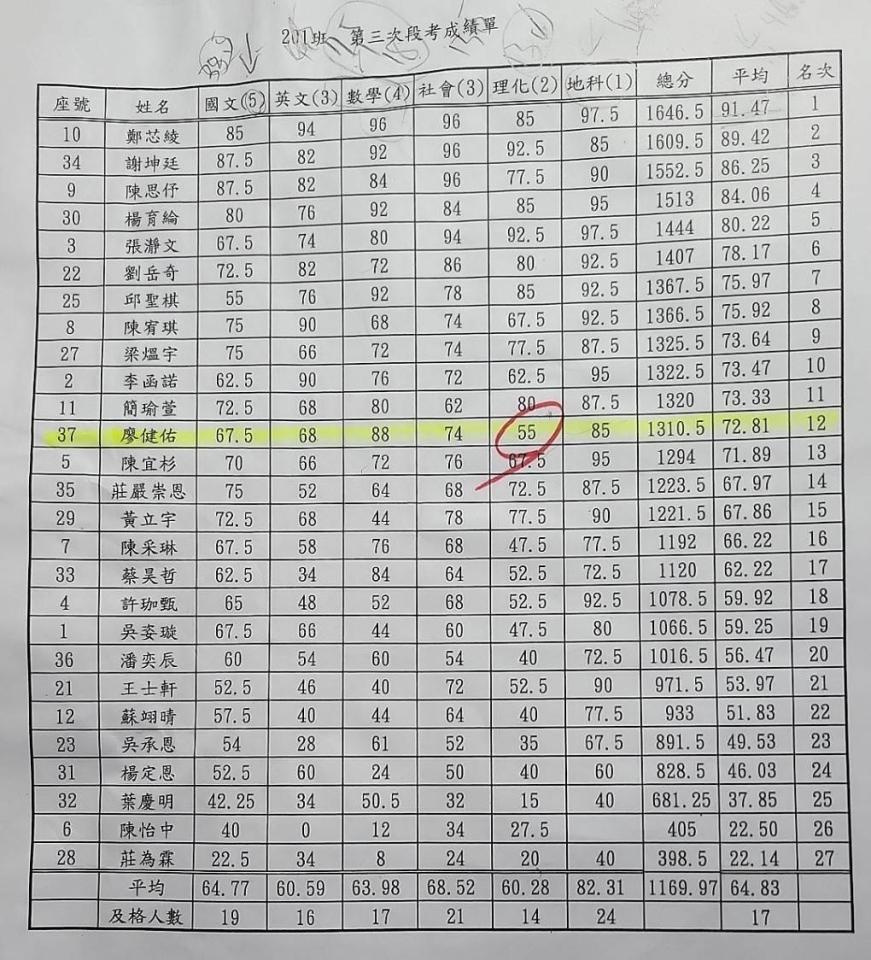 201班 第三次段考成績單
座號 姓名 國文(5) 英文(3) 數學(4) 社會(3) 理化(2) 地科(1) 總分 平均 名次
10 鄭芯綾 85 94 96 96 85 97.5 1646.5 91.47 1
34 謝坤廷 87.5 82 92 96 92.5 85 1609.5 89.42 2
9 陳思伃 87.5 82 84 96 77.5 90 1552.5 86.25 3
30 楊育綸 80 76 92 84 85 95 1513 84.06 4
3 張瀞文 67.5 74 80 94 92.5 97.5 1444 80.22 5
22 劉岳奇 72.5 82 72 86 80 92.5 1407 78.17 6
25 邱聖棋 55 76 92 78 85 92.5 1367.5 75.97 7
8 陳宥琪 75 90 68 74 67.5 92.5 1366.5 75.92 8
27 梁熅宇 75 66 72 74 77.5 87.5 1325.5 73.64 9
2 李函諾 62.5 90 76 72 62.5 95 1322.5 73.47 10
11 簡瑜萱 72.5 68 80 62 80 87.5 1320 73.33 11
37 廖健佑 67.5 68 88 74 55 85 1310.5 72.81 12
5 陳宜杉 70 66 72 76 67.5 95 1294 71.89 13
35 莊嚴崇恩 75 52 64 68 72.5 87.5 1223.5 67.97 14
29 黃立宇 72.5 68 44 78 77.5 90 1221.5 67.86 15
7 陳采琳 67.5 58 76 68 47.5 77.5 1192 66.22 16
33 蔡昊哲 62.5 34 84 64 52.5 72.5 1120 62.22 17
4 許珈甄 65 48 52 68 52.5 92.5 1078.5 59.92 18
1 吳姿璇 67.5 66 44 60 47.5 80 1066.5 59.25 19
36 潘奕辰 60 54 60 54 40 72.5 1016.5 56.47 20
21 王士軒 52.5 46 40 72 52.5 90 971.5 53.97 21
12 蘇翊晴 57.5 40 44 64 40 77.5 933 51.83 22
23 吳承恩 54 28 61 52 35 67.5 891.5 49.53 23
31 楊定恩 52.5 60 24 50 40 60 828.5 46.03 24
32 葉慶明 42.25 34 50.5 32 15 40 681.25 37.85 25
6 陳怡中 40 0 12 34 27.5 405 22.50 26
28 莊為霖 22.5 34 8 24 20 40 398.5 22.14 27
平均 64.77 60.59 63.98 68.52 60.28 82.31 1169.97 64.83
及格人數 19 16 17 21 14 24 17